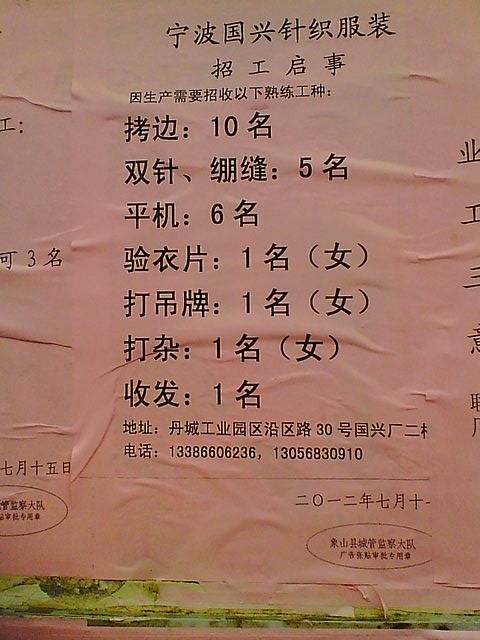 宁波国兴针织服装
招工启事
因生产需要招收以下熟练工种：
拷边：10名
双针、绷缝：5名
平机：6名
验衣片：1名（女）
打吊牌：1名（女）
打杂：1名（女）
收发：1名
地址：丹城工业园区沿区路30号国兴厂二
电话：13386606236，13056830910
二〇一二年七月十
象山县城管监察大队
广告张贴审批专用章
工：
可3名
七月十五日
城管监察大队
贴审批专用章
业
工
三
意